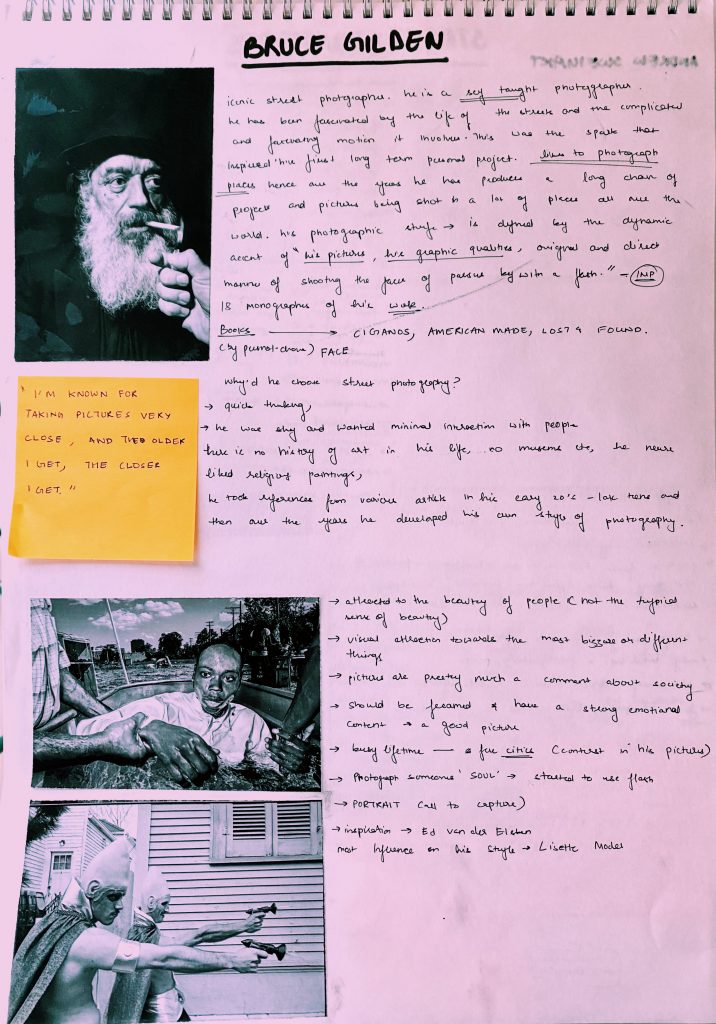 BRUCE GILDEN
iconic street photographer. he is a self taught photographer.
he has been fascinated by the life of the streets and the complicated
and fascinating motion it involves. This was the spark that
inspired his first long term personal project. likes to photograph
places hence over the years he has produces a long chain of
projects and pictures being shot in a lot of places all over the
world. his photographic style → is defined by the dynamic
accent of "his pictures, his graphic qualities, original and direct
manner of shooting the faces of passers by with a flash." – IMP
18 monographs of his work.
Books → CIGANOS, AMERICAN MADE, LOST & FOUND.
(by FACE
why'd he choose street photography?
→ quick thinking,
→ he was shy and wanted minimal interaction with people
there is no history of art in his life, .. no museums etc, he never
liked religious paintings,
he took references from various artists in his early 20's – late teens and
then over the years he developed his own style of photography.
"I'M KNOWN FOR
TAKING PICTURES VERY
CLOSE, AND THE OLDER
I GET, THE CLOSER
I GET."
→ attracted to the beauty of people ( not the typical
sense of beauty)
→ visual attraction towards the most bizzare or different
things
→ pictures are pretty much a comment about society
→ should be framed & have a strong emotional
content → a good picture
→ busy lifetime — a few cities (contrast in his pictures)
→ Photograph someone's 'SOUL' → started to use flash
→ PORTRAIT (all to capture)
→ inspiration → Ed van der Elsken
most influence on his style → Lisette Model